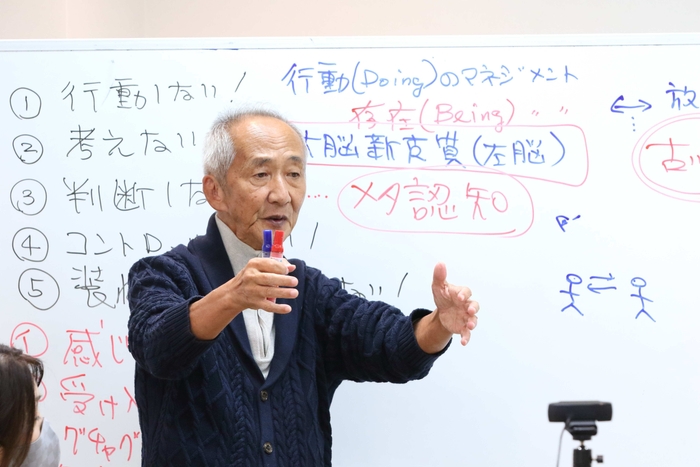 ① 行動しない！
② 考えない
③ 判断しな
④ コントロ
！
⑤ 装
い！
① 感じ
受け入
グチャグ
行動(Doing)のマネジメント
存在(Being) 〃 〃
大脳新皮質(左脳)
…… メタ認知
放
古